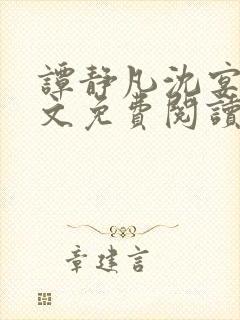 譚靜凡沈宴
文免費閱讀
章建言